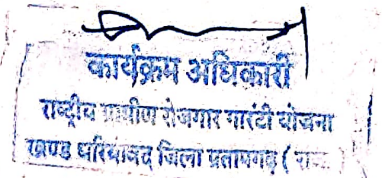 कार्यक्रम अधिकारी
राष्ट्रीय ग्रामीण रोजगार गारंटी योजना
खण्ड धरियावद जिला प्रतापगढ़ (